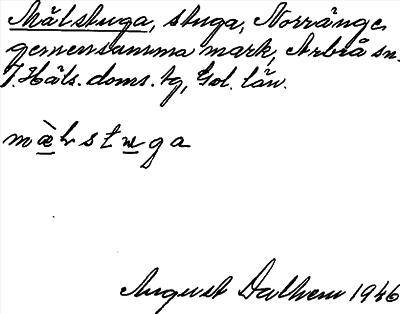 Mälstuga, stuga, Norränge
gemensamma mark, Arbrå sn.
V. Häls. doms. tg, Gol. län.
mæ̀lstuga
August Dalhem 1946